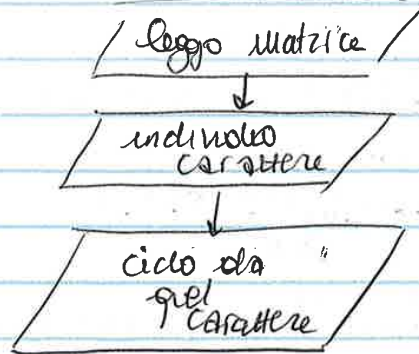 leggo matrice
individuo
carattere
ciclo da
quel
carattere